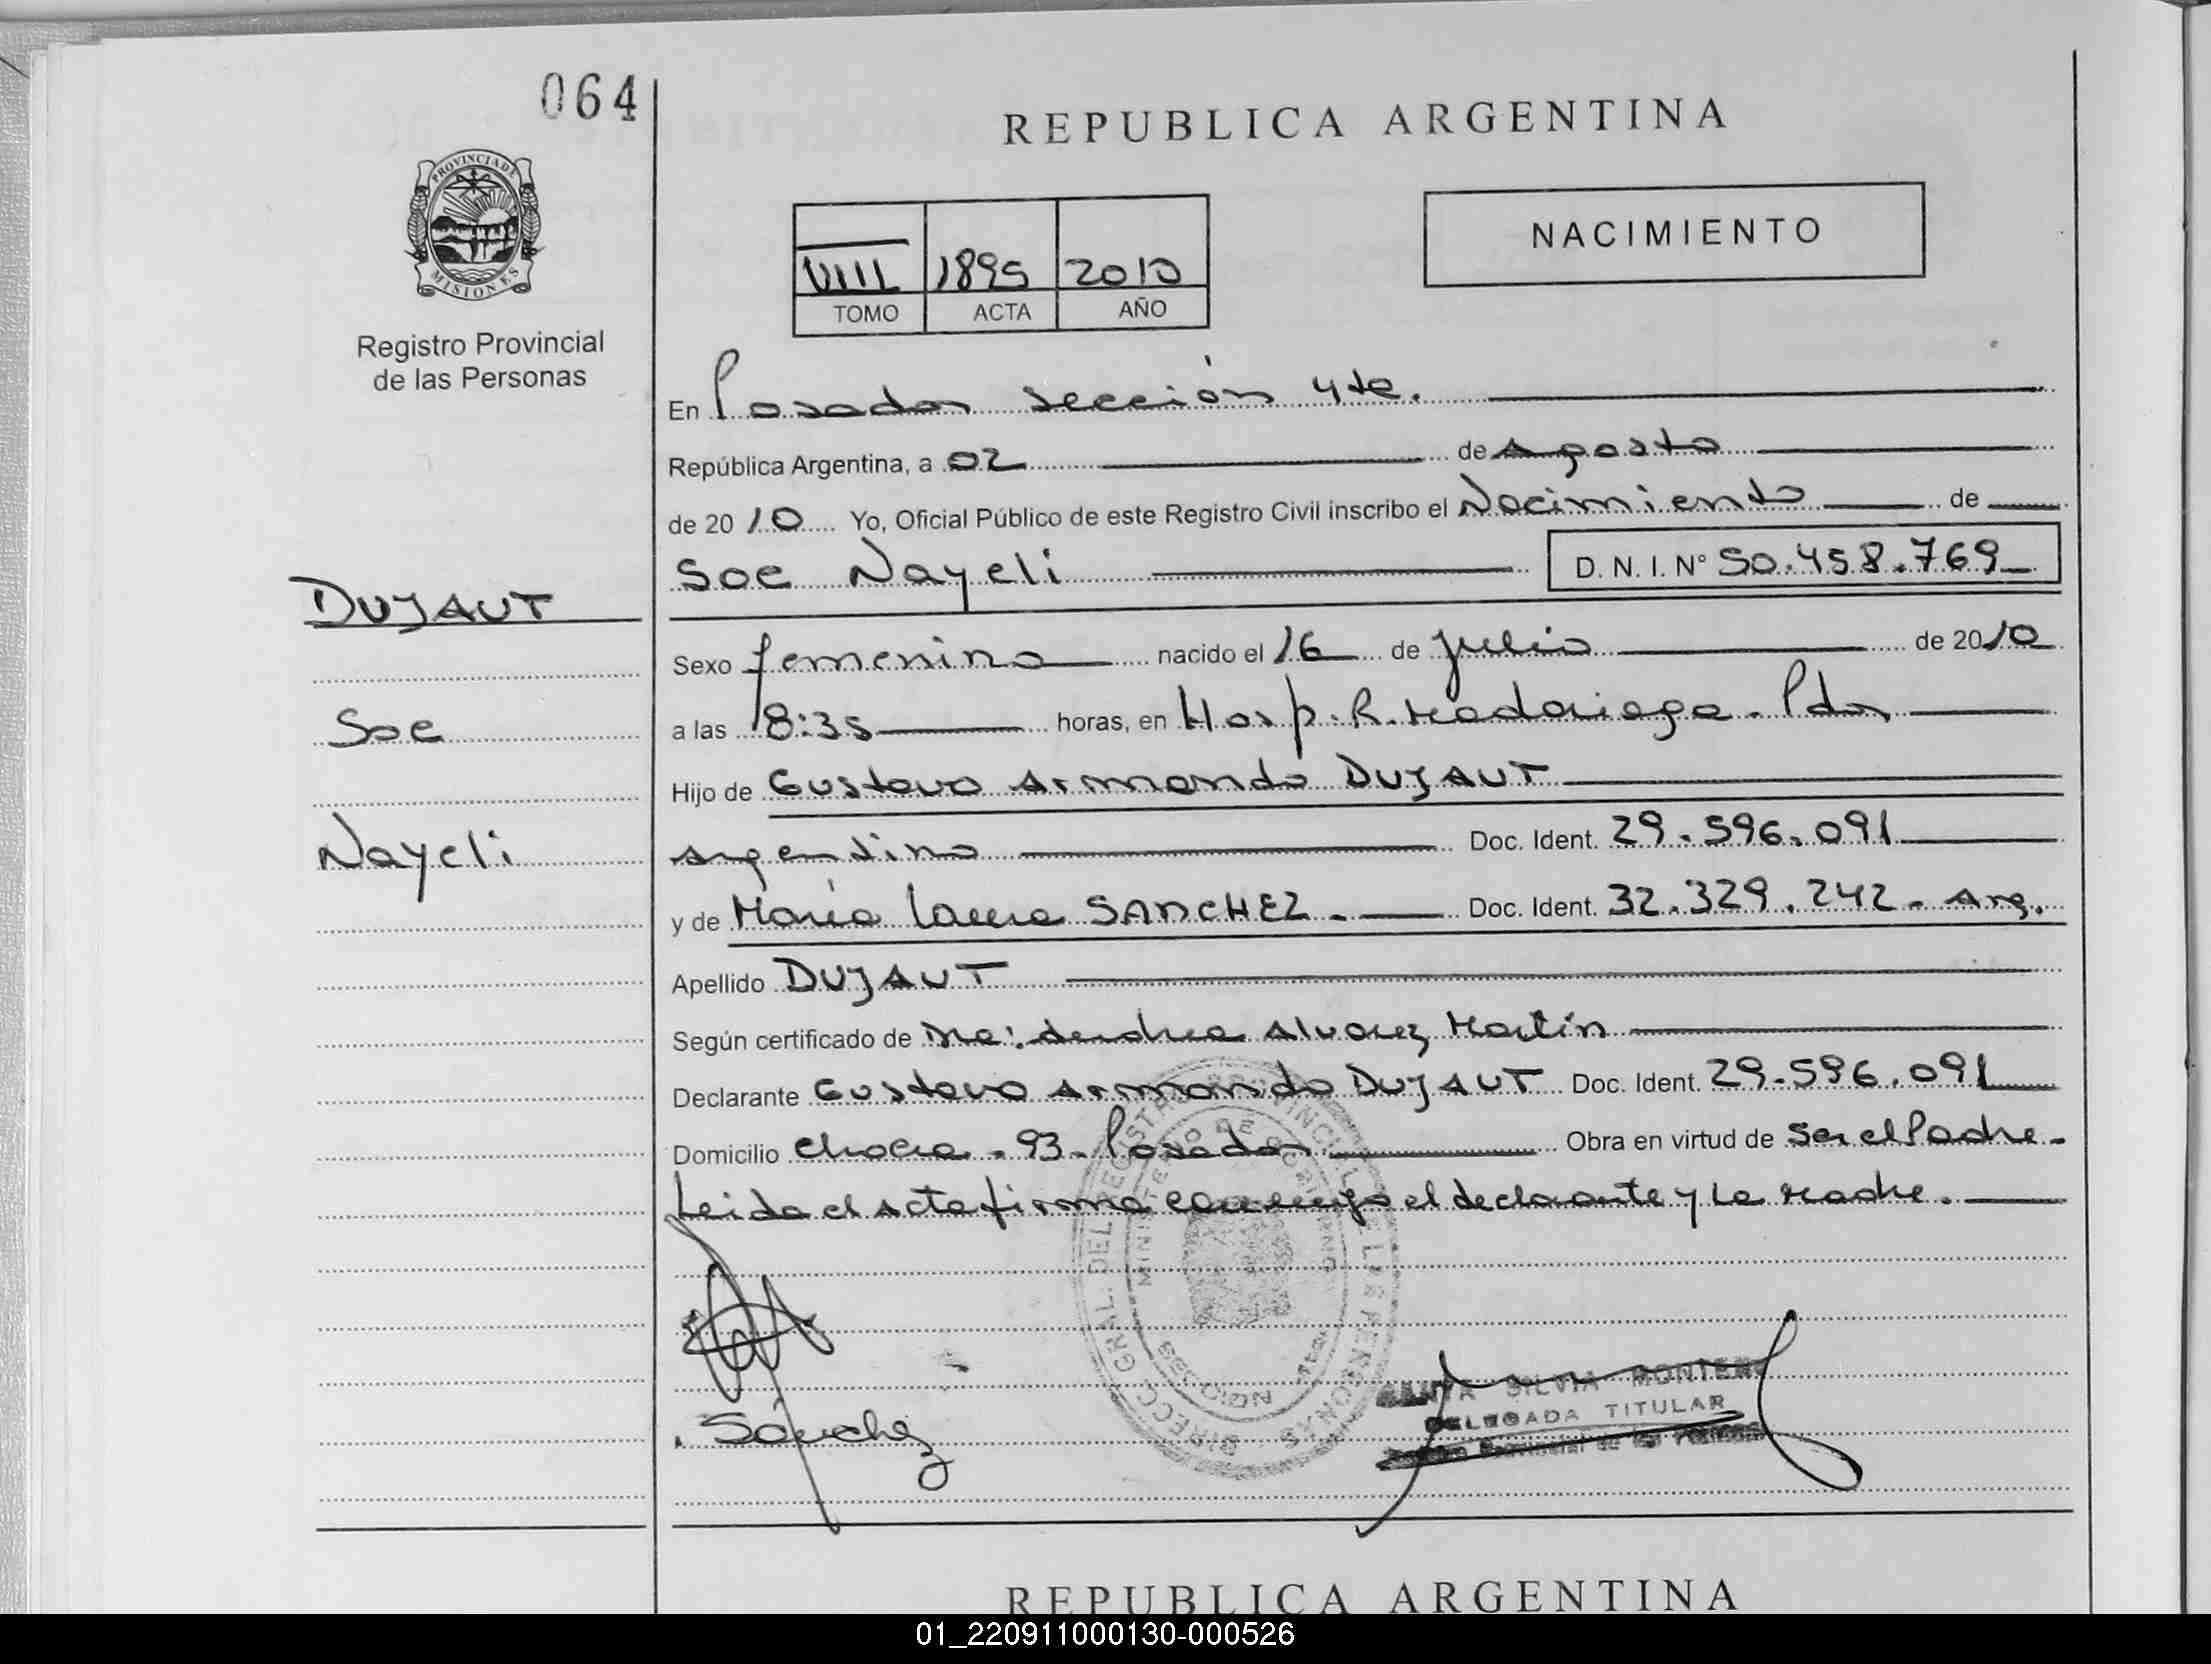 064
REPUBLICA ARGENTINA
PROVINCIA DE MISIONES
NACIMIENTO
VIII 1895 2010
TOMO ACTA AÑO
Registro Provincial
de las Personas
En Posadas sección 4ta.
República Argentina, a 02 de Agosto
de 2010 Yo, Oficial Público de este Registro Civil inscribo el Nacimiento de
Soe Nayeli D. N. I. Nº 50.458.769
DUJAUT
Soe
Nayeli
Sexo femenino nacido el 16 de julio de 2010
a las 18:35 horas, en Hosp. R. Madariaga. Pdas
Hijo de Gustavo Armando DUJAUT
Argentino Doc. Ident. 29.596.091
y de María Laura SANCHEZ. Doc. Ident. 32.329.242. Arg.
Apellido DUJAUT
Según certificado de Alvarez Martín
Declarante Gustavo Armando DUJAUT Doc. Ident. 29.596.091
Domicilio 93. Posadas Obra en virtud de Ser el Padre.
Leida el Acta firma conmigo el declarante y La Madre.
DIRECC. GRAL. DEL REGISTRO PROVINCIAL DE LAS PERSONAS
MINISTERIO DE GOBIERNO
Sánchez
SILVIA MONTERO
DELEGADA TITULAR
REPUBLICA ARGENTINA
01_220911000130-000526